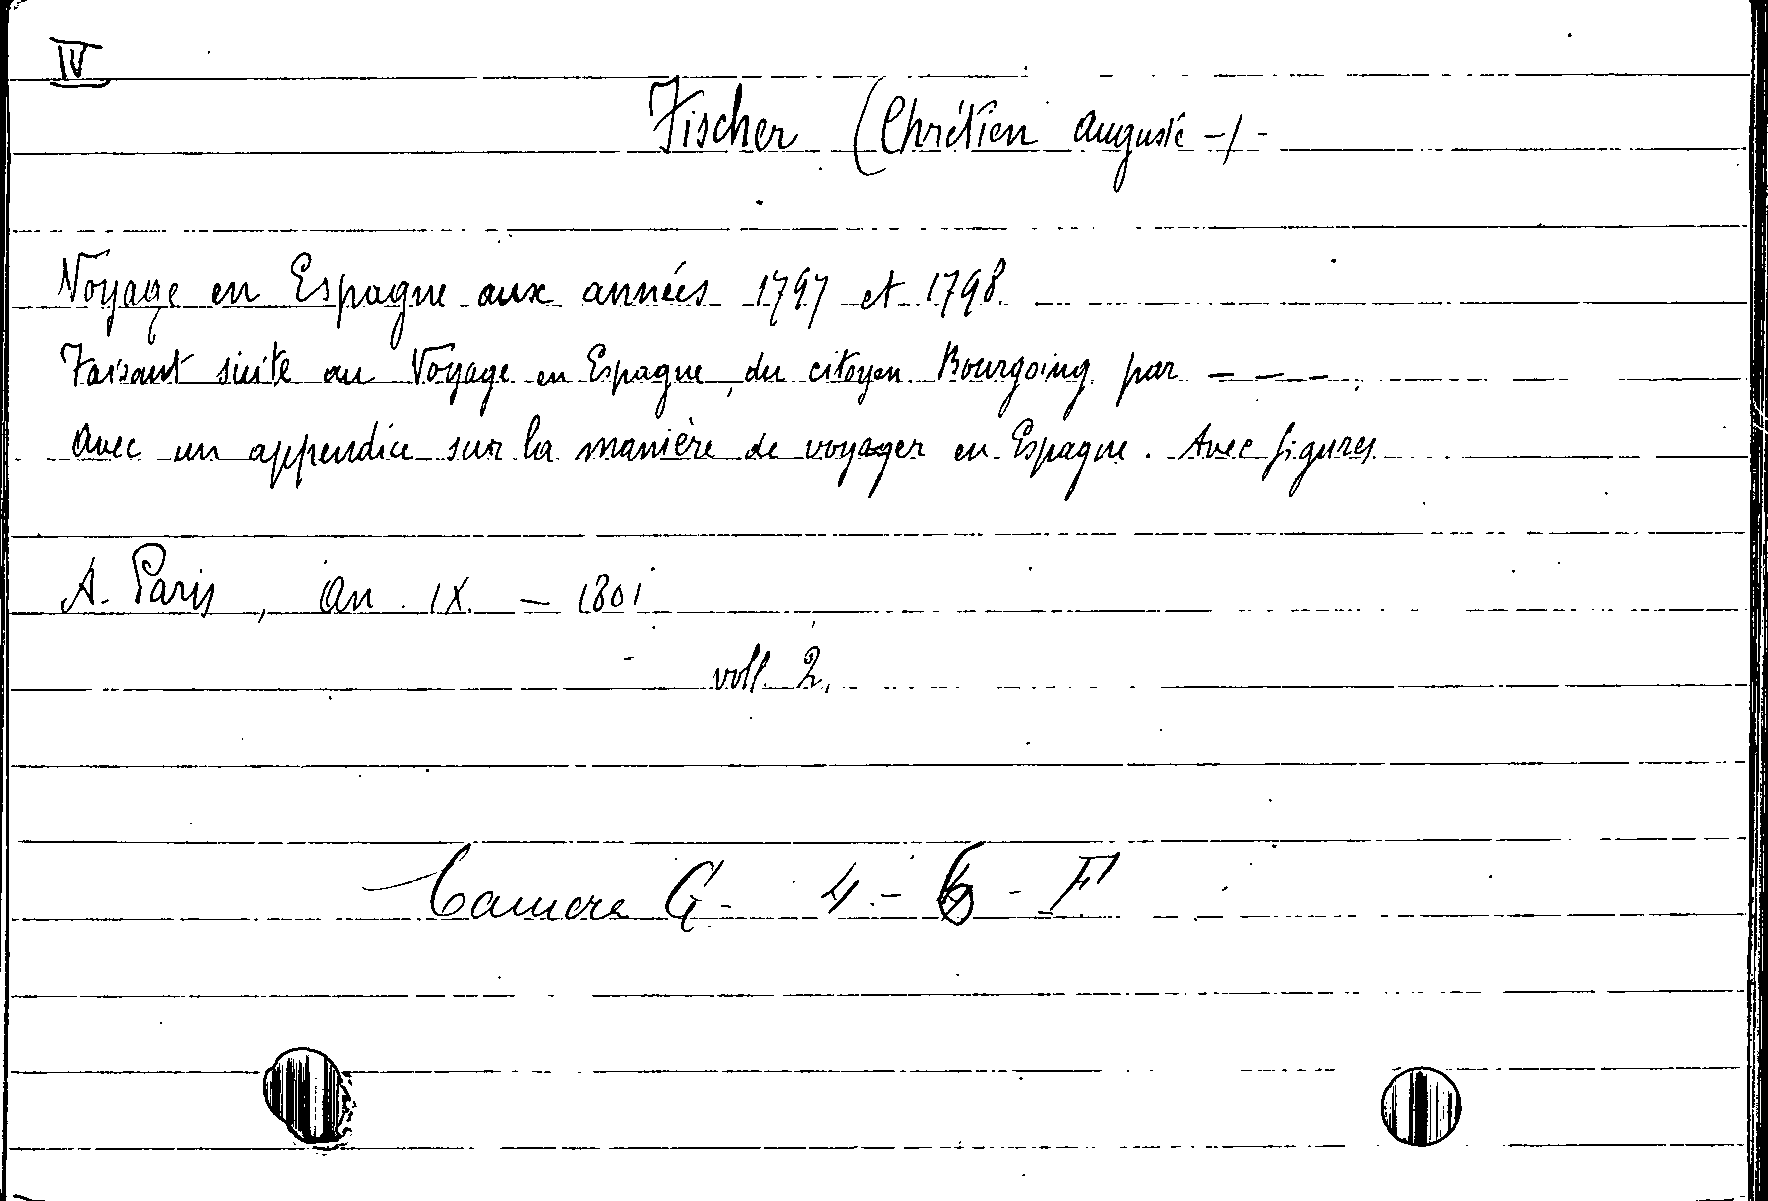 IV
Fischer (Chrétien Auguste -)-
Voyage en Espagne aux années 1797 et 1798
Faisant suite au Voyage en Espagne, du citoyen Bourgoing par - - - .
avec un appendice sur la manière de voyager en Espagne. Avec figures
A Paris, an IX - 1801
voll. 2.
Camera G - 4 - - F